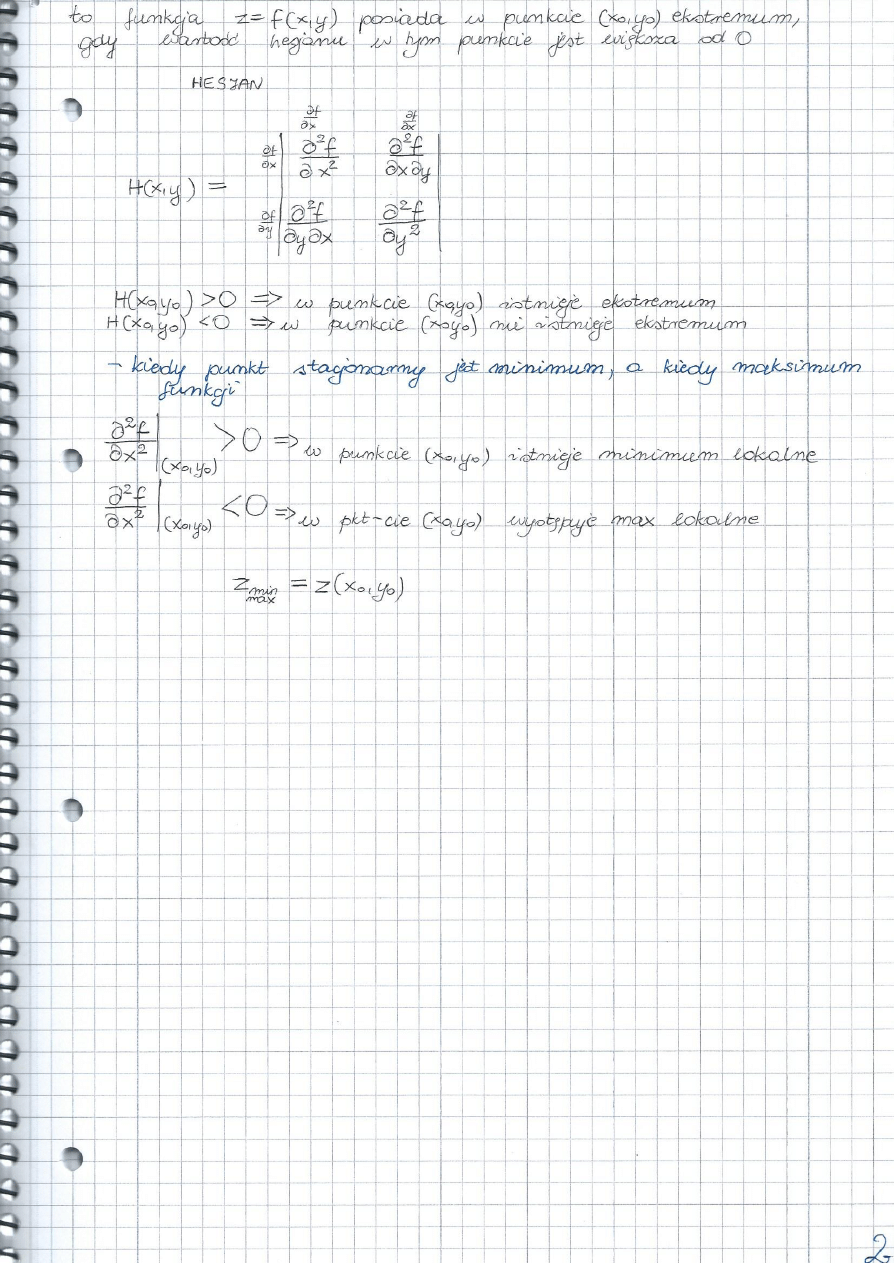 to funkcja z=f(x,y) posiada w punkcie (x₀,y₀) ekstremum,
gdy wartość hesjanu w tym punkcie jest większa od 0
HESJAN
∂f/∂x ∂f/∂x
H(x,y) = | ∂f/∂x ∂²f/∂x² ∂²f/∂x∂y |
| ∂f/∂y ∂²f/∂y∂x ∂²f/∂y² |
H(x₀,y₀) >0 ⇒ w punkcie (x₀,y₀) istnieje ekstremum
H(x₀,y₀) <0 ⇒ w punkcie (x₀,y₀) nie istnieje ekstremum
- kiedy punkt stacjonarny jest minimum, a kiedy maksimum
funkcji
∂²f/∂x² |(x₀,y₀) >0 ⇒ w punkcie (x₀,y₀) istnieje minimum lokalne
∂²f/∂x² |(x₀,y₀) <0 ⇒ w pkt-cie (x₀,y₀) występuje max lokalne
z min max = z(x₀,y₀)
2